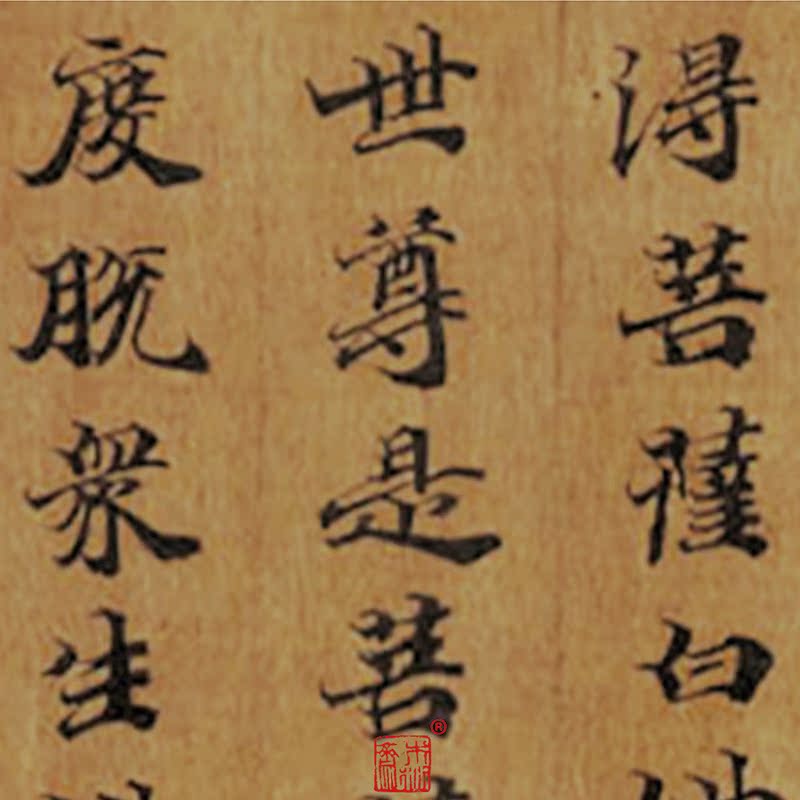 得菩薩白
世尊是菩
度脱衆生